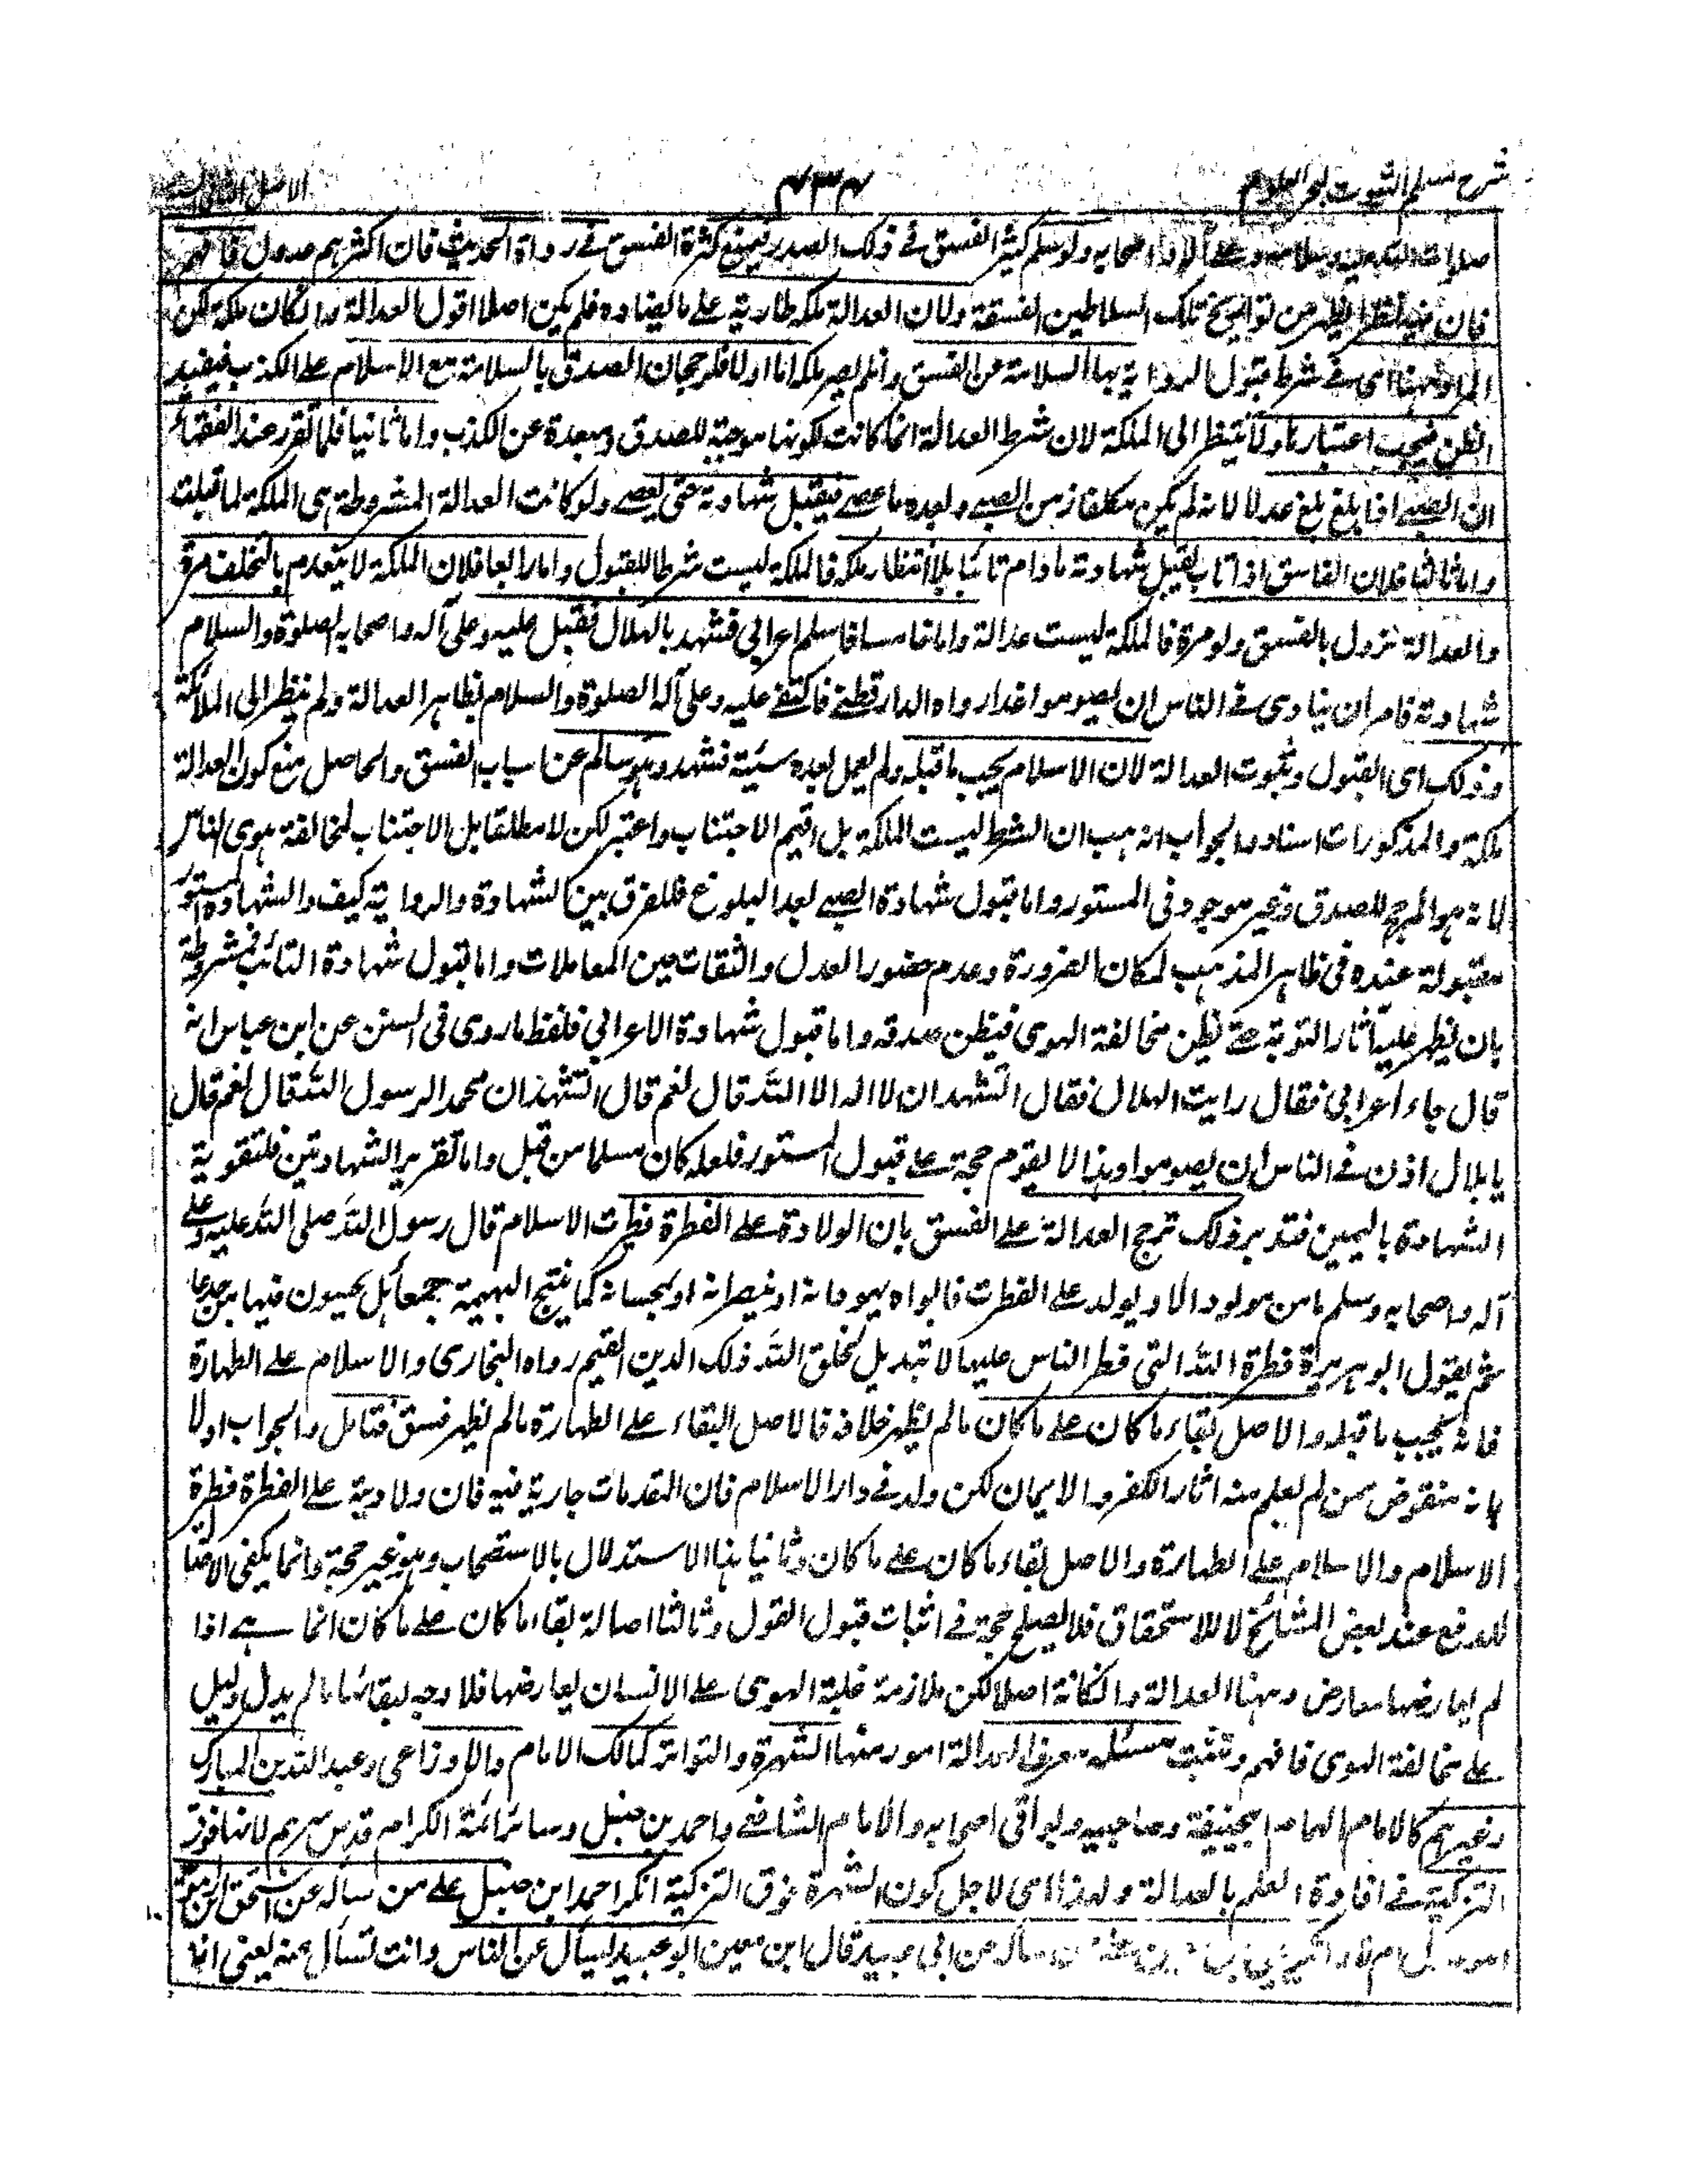 شرح مسلم الثبوت لبحر العلوم ۴۳۴ الاصل الثانی السنة
صلوات الله عليه وسلامه وعلى آله واصحابه ولو سلم كثير الفسق فے ذلك الصدر فيمنع كثرة الفسق فے رواة الحديث فان اكثرهم عدول فافهم
فان فيه نظرا يظهر من تواريخ تلك السلاطين الفسقة ولان العدالة ملكة طارية على ما يضاده فلم يكن اصلا اقول العدالة وان كان ملكة لكن
المراد ههنا اى فے شرط قبول الرواية بها السلامة عن الفسق وان لم يصر ملكة اما اولا فلرجحان الصدق بالسلامة مع الاسلام على الكذب فيفيد
الظن فيجب اعتباره ولا ينتظر الى الملكة لان شرط العدالة انما كانت لكونها موجبة للصدق ومبعدة عن الكذب واما ثانيا فلما تقرر عند الفقهاء
ان الصبے اذا بلغ بلغ عدلا لانه لم يكن مكلفا زمن الصبے وبعده ما عصے فيقبل شهادته حتى يعصے ولو كانت العدالة المشروطة هى الملكة لما قبلت
واما ثالثا فلان الفاسق اذا تاب يقبل شهادته ما دام تائبا بلا انتظار ملكة فالملكة ليست شرطا للقبول واما رابعا فلان الملكة لا ينعدم بالتخلف مرة
والعدالة تزول بالفسق ولو مرة فالملكة ليست عدالة واما خامسا فاسلم اعرابى فشهد بالهلال فقبل عليه وعلى آله واصحابه الصلوة والسلام
شهادته فامر ان ينادى فے الناس ان يصوموا غدا رواه الدارقطنے فاكتفے عليه وعلى آله الصلوة والسلام بظاهر العدالة ولم ينظر الى الملكة
وذلك اى القبول وثبوت العدالة لان الاسلام يجب ما قبله ولم يعمل بعده سيئة فشهد وهو سالم عن اسباب الفسق والحاصل منع كون العدالة
ملكة والمذكورات اسناد والجواب انه هب ان الشرط ليست الملكة بل اقيم الاجتناب واعتبر لكن لا مطلقا بل الاجتناب لمخالفة هوى الناس
لانه هو المرجح للصدق وغير موجود فى المستور واما قبول شهادة الصبے بعد البلوغ فللفرق بين الشهادة والرواية كيف والشهادة المستور
مقبولة عنده فى ظاهر المذهب لمكان الضرورة وعدم حضور العدل والثقات حين المعاملات واما قبول شهادة التائب فمشروطة
بان يظهر عليه آثار التوبة حتے يظن مخالفة الهوى فيظن صدقه واما قبول شهادة الاعرابى فلفظ ما روى فى السنن عن ابن عباس انه
قال جاء اعرابى فقال رايت الهلال فقال اتشهد ان لا اله الا الله قال نعم قال اتشهد ان محمد الرسول الله قال نعم قال
يا بلال اذن فے الناس ان يصوموا وهذا لا يقوم حجة على قبول المستور فلعله كان مسلما من قبل واما تقرير الشهادتين فلتقوية
الشهادة باليمين فتدبر وذلك ترجح العدالة على الفسق بان الولادة على الفطرة فطرت الاسلام قال رسول الله صلى الله عليه وعلى
آله واصحابه وسلم ما من مولود الا ويولد على الفطرت فابواه يهودانه او ينصرانه او يمجسانه كما ينتج البهيمة جمعا هل تحسون فيها من جدعا
ثم يقول ابو هريرة فطرة الله التى فطر الناس عليها لا تبديل لخلق الله ذلك الدين القيم رواه البخارى والاسلام على الطهارة
فانه يجب ما قبله والاصل بقاء ما كان على ما كان ما لم يظهر خلافه فالاصل البقاء على الطهارة ما لم يظهر فسق فتامل والجواب اولا
بانه منقوض بمن لم يعلم منه اثار الكفر والايمان لكن ولد فے دار الاسلام فان المقدمات جارية فيه فان ولادته على الفطرة فطرة
الاسلام والاسلام على الطهارة والاصل بقاء ما كان على ما كان وثانيا هذا الاستدلال بالاستصحاب وهو غير حجة وانما يكفى
للدفع عند بعض المشائخ لا للاستحقاق فلا يصلح حجة فے اثبات قبول القول وثالثا اصالة بقاء ما كان على ما كان انما هے اذا
لم يعارضها معارض وههنا العدالة وان كانت اصلا لكن ملازمة غلبة الهوى على الانسان يعارضها فلا وجه لبقائها ما لم يدل دليل
على مخالفة الهوى فافهم وتثبت مسئلة معرف العدالة امور منها الشهرة والتواتر كمالك الامام والاوزاعى وعبد الله بن المبارك
وغيرهم كالامام الهمام ابيحنيفة وصاحبيه وبواقى اصحابه والامام الشافعے واحمد بن حنبل وسائر ائمة الكرام قدس سرهم لانها فوق
التزكية فے افادة العلم بالعدالة ولهذا اى لاجل كون الشهرة فوق التزكية انكر احمد ابن حنبل على من ساله عن اسحق ابن
ساله عن ابى عبيد قال ابن معين ابو عبيد يسأل عن الناس وانت تسأل عنه يعنى انه